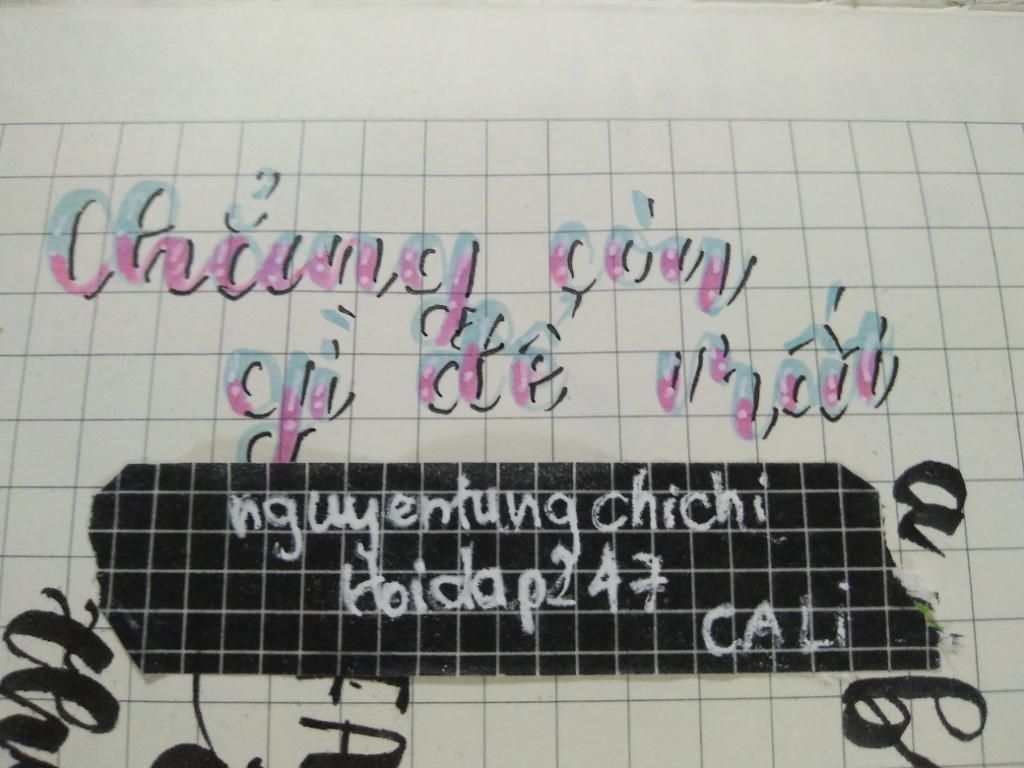 Chẳng còn
gì để mất
nguyentungchichi
Hoidap247
CALi
a
b